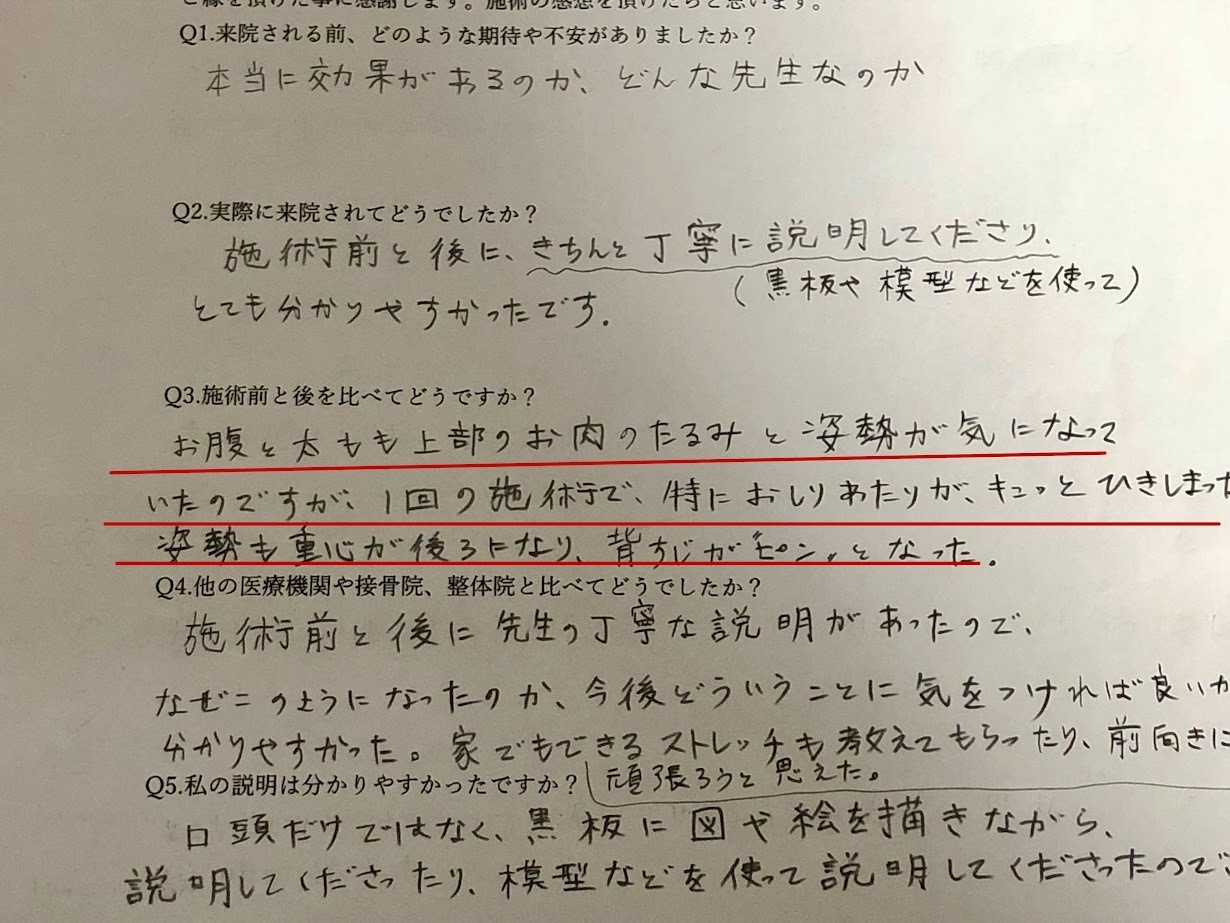 ご縁を頂けた事に感謝します。施術の感想を頂けたらと思います。
Q1.来院される前、どのような期待や不安がありましたか？
本当に効果があるのか、どんな先生なのか
Q2.実際に来院されてどうでしたか？
施術前と後に、きちんと丁寧に説明してくださり、
(黒板や模型などを使って)
とても分かりやすかったです。
Q3.施術前と後を比べてどうですか？
お腹と太もも上部のお肉のたるみと姿勢が気になって
いたのですが、1回の施術で、特におしりわたりが、キュッとひきしまった
姿勢も重心が後ろになり、背すじがピンッとなった。
Q4.他の医療機関や接骨院、整体院と比べてどうでしたか？
施術前と後に先生の丁寧な説明があったので、
なぜこのようになったのか、今後どういうことに気をつければ良いか
分かりやすかった。家でもできるストレッチも教えてもらったり、前向きに
頑張ろうと思えた。
Q5.私の説明は分かりやすかったですか？
口頭だけではなく、黒板に図や絵を描きながら、
説明してくださったり、模型などを使って説明してくださったので